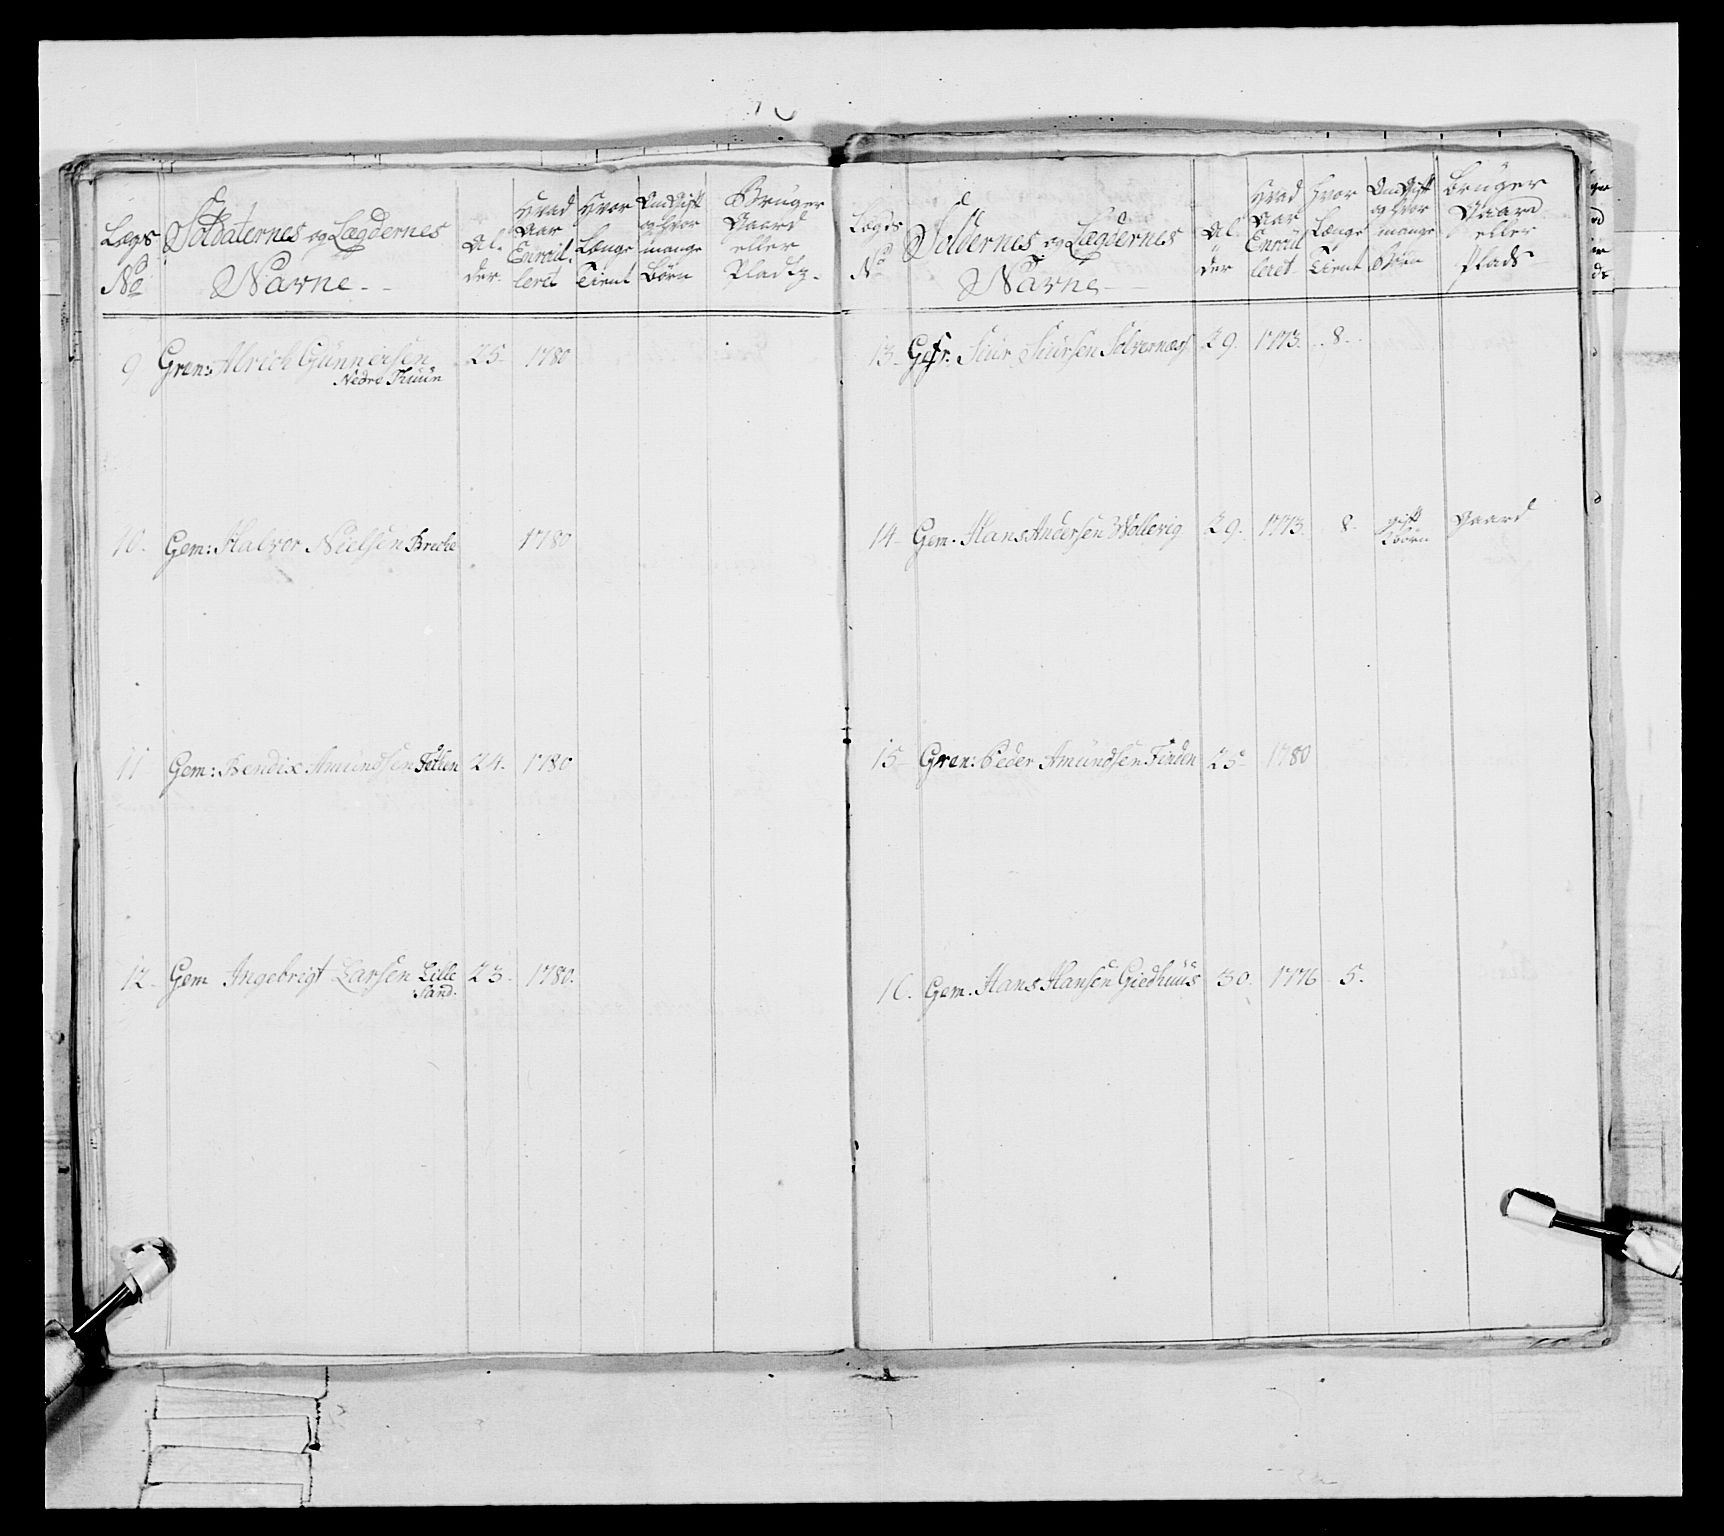 Lægs No
Soldaternes og Lægdernes Navne
Al- der
Hvad Aar Enroul- leret
Hvor Længe Tient
Om Gift og Hvor mange Børn
Bruger Gaard eller Pladtz
9 Gren: Alrich Gunnersen 25. 1780
Nedre Thuun
10. Gem: Halvor Nielsen Breche 1780
11 Gem: Bendix Amundsen Fetten 24. 1780
12 Gem Ingebrigt Larsen Lille 23. 1780.
Sand.
Lægds No
Soldernes og Lægdernes Navne
Al- der
Hvad Aar Enroul leret
Hvor Længe Tient
Om Gift og Hvor mange Børn
Bruger Gaard eller Plads
13. Gefr. Siur Siursen Solvernæs 29. 1773. 8.
14 Gem. Hans Andersen Wollevig 29. 1773. 8. gift Gaard
børn
15 Gren: Peder Amundsen Finden 25 1780
16. Gem. Hans Hansen Giedhuus 30. 1776 5.